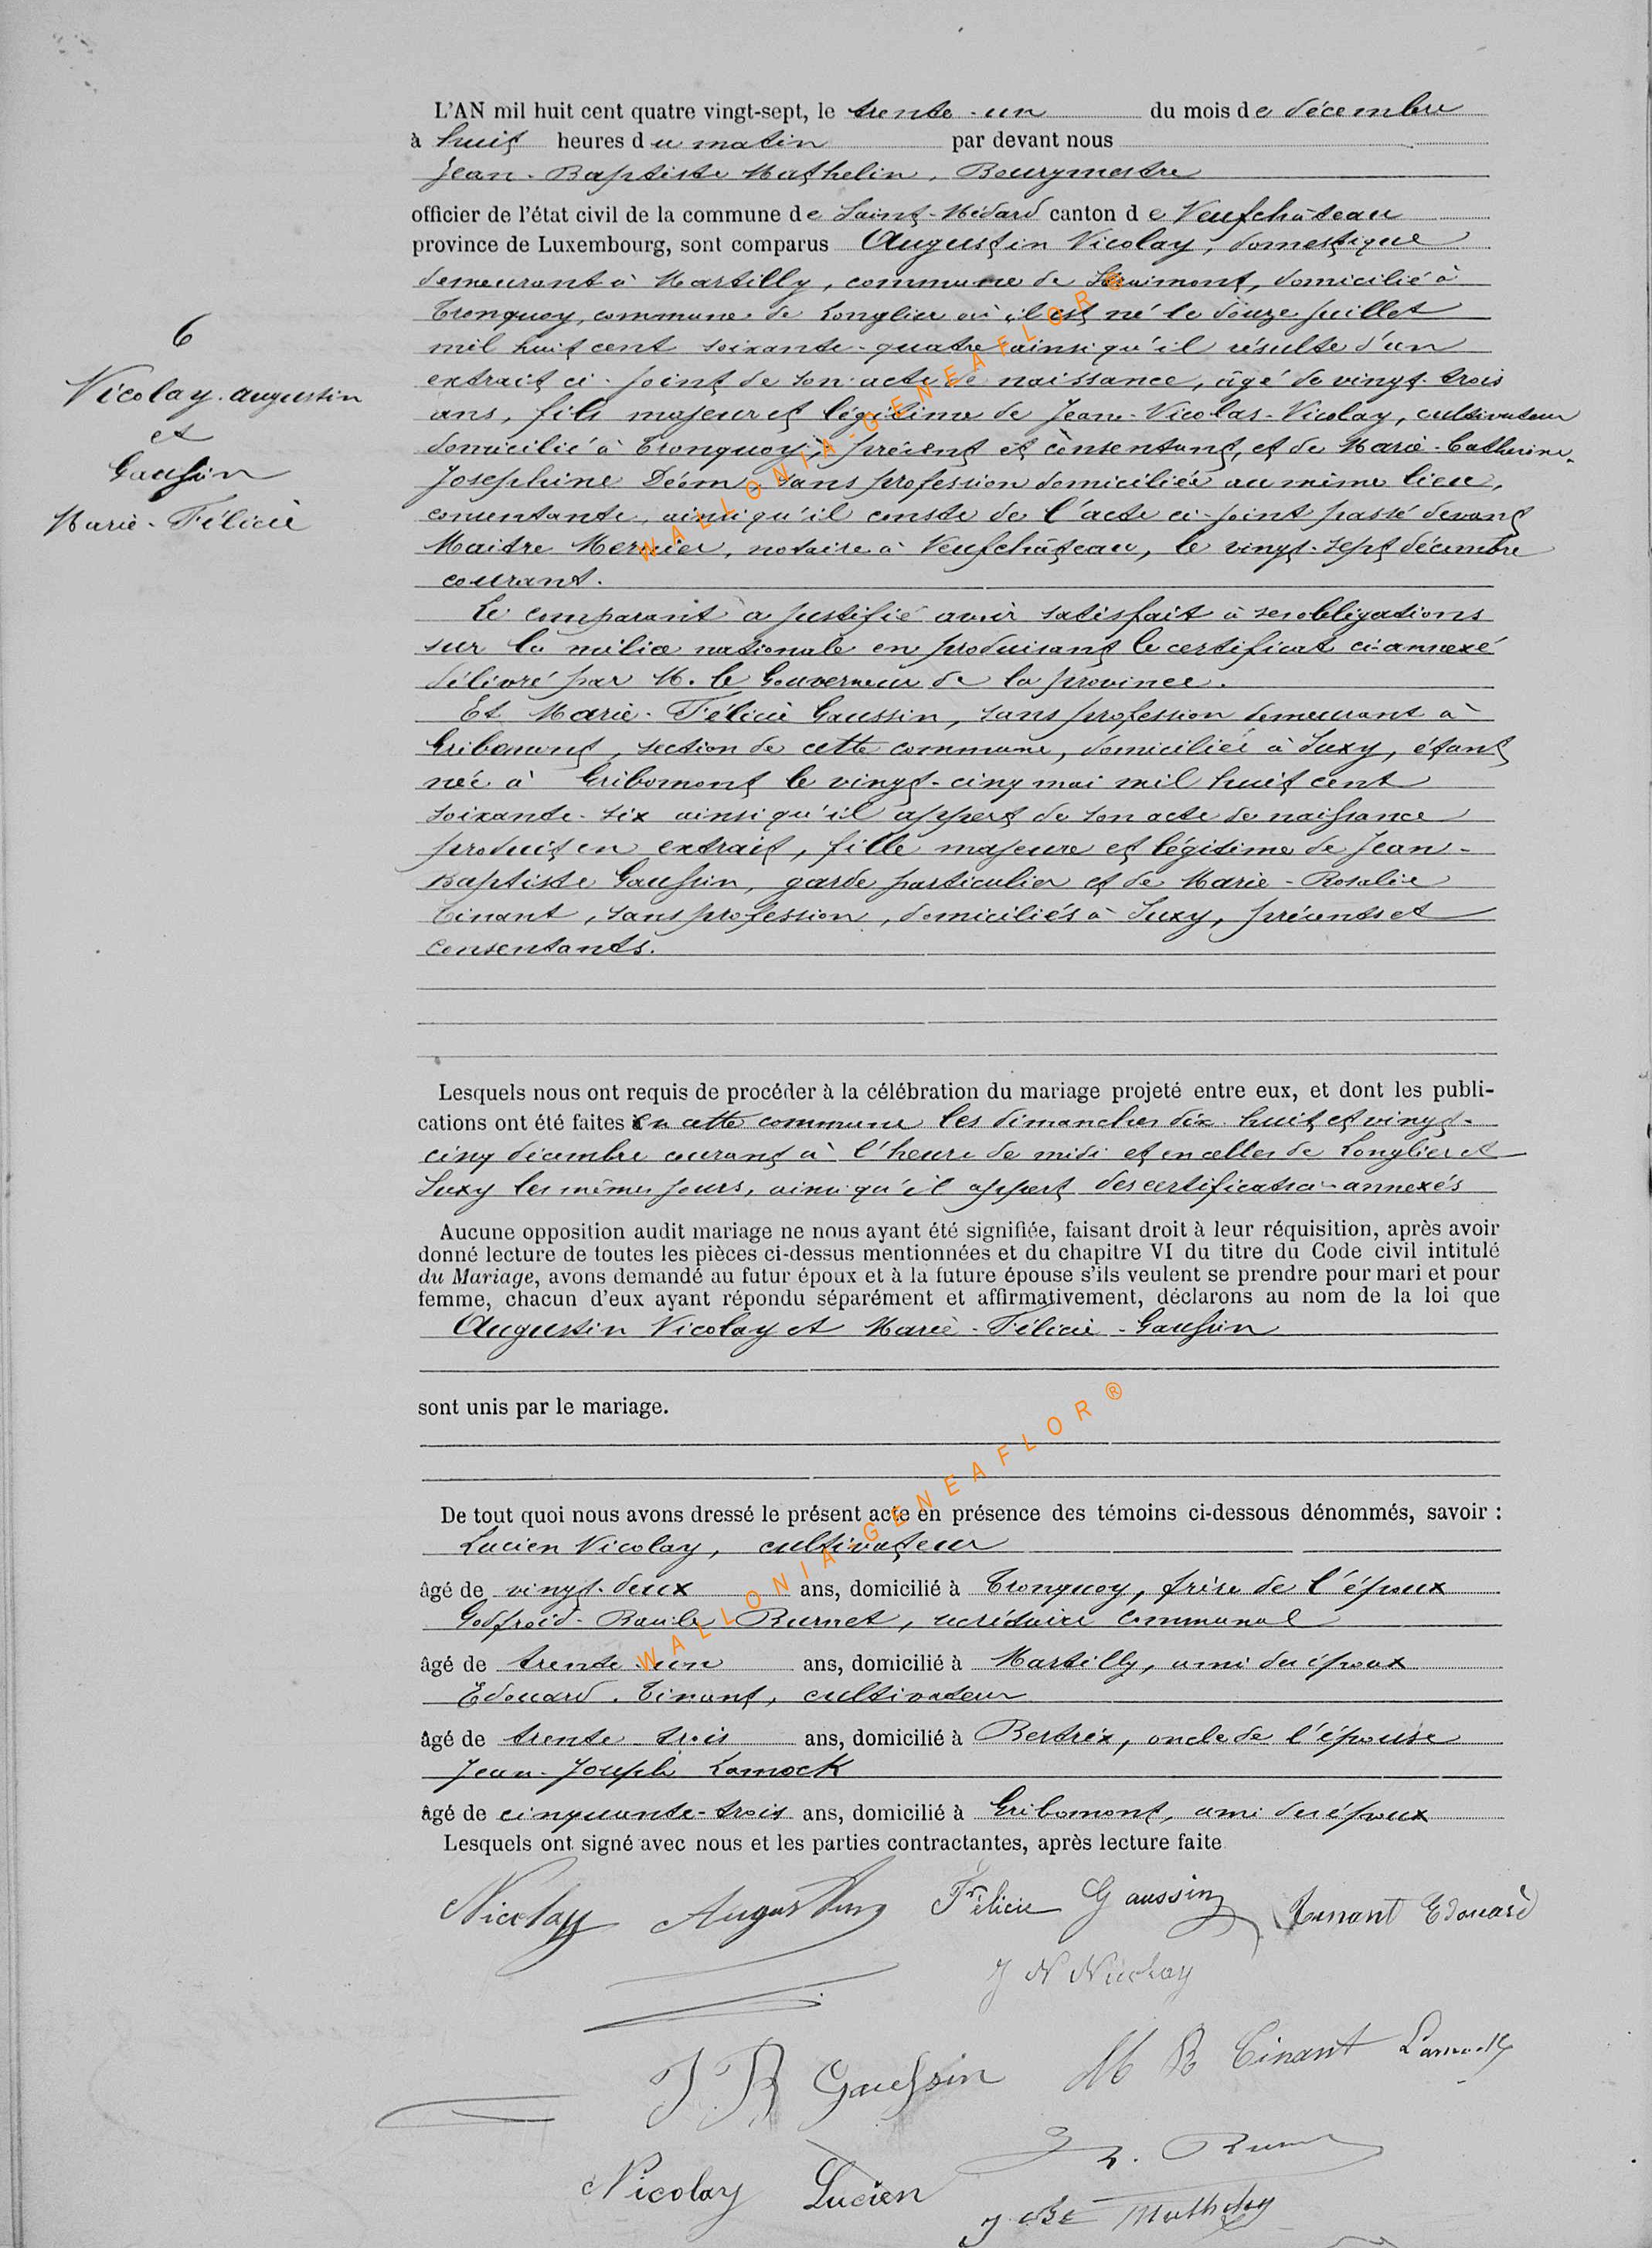 L'AN mil huit cent quatre vingt-sept, le trente-un du mois de décembre
à huit heures du matin par devant nous
Jean-Baptiste Mathelin, Bourgmestre
officier de l'état civil de la commune de Saint-Médard canton de Neufchâteau
province de Luxembourg, sont comparus Augustin Nicolay, domestique
demeurant à Martilly, commune de Straimont, domicilié à
Tronquoy, commune de Longlier où il est né le douze juillet
mil huit cent soixante-quatre ainsi qu'il résulte d'un
extrait ci-joint de son acte de naissance, âgé de vingt-trois
ans, fils majeur et légitime de Jean-Nicolas-Nicolay, cultivateur
domicilié à Tronquoy, présent et consentant, et de Marie-Catherine-
Josephine Déom, sans profession domiciliée au même lieu,
consentante, ainsi qu'il conste de l'acte ci-joint passé devant
Maitre Mernier, notaire à Neufchâteau, le vingt-sept décembre
courant.
Le comparant a justifié avoir satisfait à ses obligations
sur la milice nationale en produisant le certificat ci-annexé
délivré par M. le Gouverneur de la province.
Et Marie-Félicie Gaussin, sans profession demeurant à
Gribomont, section de cette commune, domiciliée à Suxy, étant
née à Gribomont le vingt-cinq mai mil huit cent
soixante-six ainsi qu'il appert de son acte de naissance
produit en extrait, fille majeure et légitime de Jean-
Baptiste Gaussin, garde particulier et de Marie-Rosalie
Tinant, sans profession, domiciliés à Suxy, présents et
consentants.
6
Nicolay Augustin
et
Gaussin
Marie-Félicie
Lesquels nous ont requis de procéder à la célébration du mariage projeté entre eux, et dont les publi-
cations ont été faites en cette commune les dimanches dix-huit et vingt-
cinq décembre courant à l'heure de midi et en celles de Longlier et
Suxy les mêmes jours, ainsi qu'il appert des certificats ci-annexés
Aucune opposition audit mariage ne nous ayant été signifiée, faisant droit à leur réquisition, après avoir
donné lecture de toutes les pièces ci-dessus mentionnées et du chapitre VI du titre du Code civil intitulé
du Mariage, avons demandé au futur époux et à la future épouse s'ils veulent se prendre pour mari et pour
femme, chacun d'eux ayant répondu séparément et affirmativement, déclarons au nom de la loi que
Augustin Nicolay et Marie-Félicie-Gaussin
sont unis par le mariage.
De tout quoi nous avons dressé le présent acte en présence des témoins ci-dessous dénommés, savoir :
Lucien Nicolay, cultivateur
âgé de vingt-deux ans, domicilié à Tronquoy, frère de l'époux
Godfroid- Burnet, secrétaire communal
âgé de trente-un ans, domicilié à Martilly, ami des époux
Edouard Tinant, cultivateur
âgé de trente-trois ans, domicilié à Bertrix, oncle de l'épouse
Jean-Joseph Lamock
âgé de cinquante-trois ans, domicilié à Gribomont, ami des époux
Lesquels ont signé avec nous et les parties contractantes, après lecture faite
Nicolay Augustin Félicie Gaussin Tinant Edouard
J N Nicolay
J B Gaussin M R Tinant Lamock
Nicolay Lucien
WALLONIA-GENEAFLOR®
WALLONIA-GENEAFLOR®